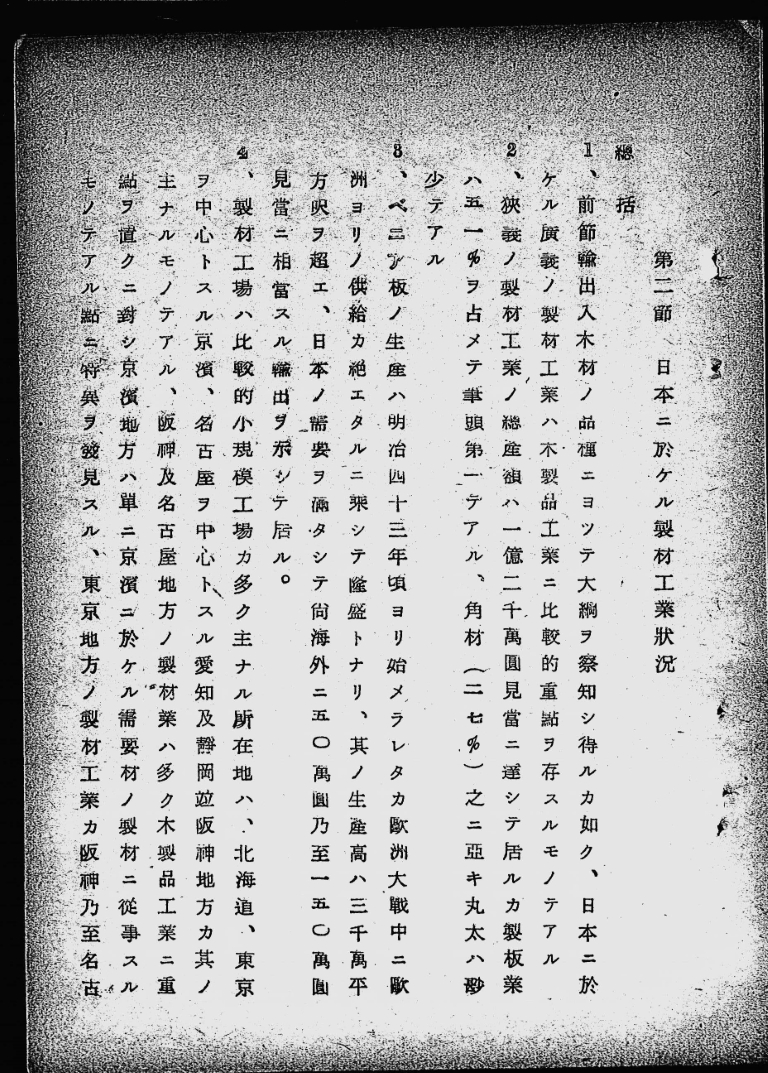 第二節　日本ニ於ケル製材工業狀況
總括
1、前節輸出入木材ノ品種ニヨツテ大綱ヲ察知シ得ルカ如ク、日本ニ於
ケル廣義ノ製材工業ハ木製品工業ニ比較的重點ヲ存スルモノテアル
2、狹義ノ製材工業ノ總產額ハ一億二千萬圓見當ニ達シテ居ルカ製板業
ハ五一%ヲ占メテ筆頭第一デアル、角材（二七%）之ニ亞キ丸太ハ尠
少テアル
3、ベニア板ノ生産ハ明治四十三年頃ヨリ始メラレタカ歐洲大戰中ニ歐
洲ヨリノ供給カ絶エタルニ乘シテ隆盛トナリ、其ノ生產高ハ三千萬平
方呎ヲ超エ、日本ノ需要ヲ滿タシテ尙海外ニ五〇萬圓乃至一五〇萬圓
見當ニ相當スル輸出ヲ示シテ居ル。
4、製材工場ハ比較的小規模工場カ多ク主ナル所在地ハ、北海道、東京
ヲ中心トスル京濱、名古屋ヲ中心トスル愛知及靜岡竝阪神地方カ其ノ
主ナルモノテアル、阪神及名古屋地方ノ製材業ハ多ク木製品工業ニ重
點ヲ直クニ對シ京濱地方ハ單ニ京濱ニ於ケル需要材ノ製材ニ從事スル
モノテアル點ニ特異ヲ發見スル、東京地方ノ製材工業カ阪神乃至名古